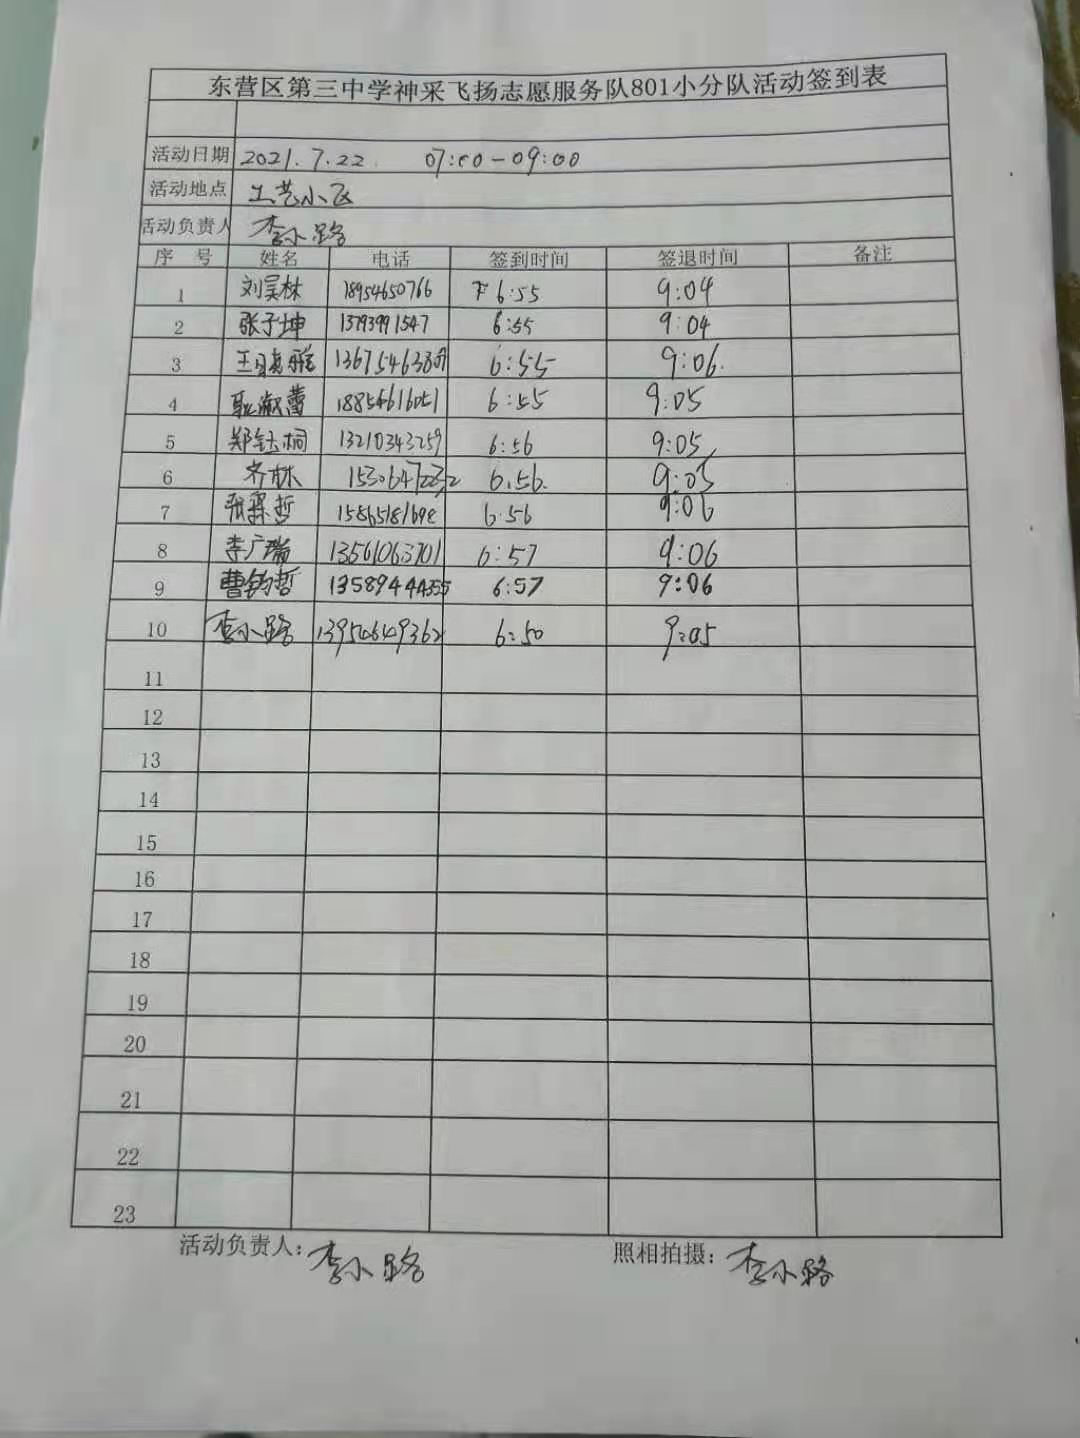 东营区第三中学神采飞扬志愿服务队801小分队活动签到表
活动日期 2021.7.22 07:00-09:00
活动地点 工艺小区
活动负责人 李小路
序号 姓名 电话 签到时间 签退时间 备注
1 刘昊林 18954650766 6:55 9:04
2 张子坤 13793991547 6:55 9:04
3 6:55 9:06
4 耿淑蕾 18854616051 6:55 9:05
5 郑钰桐 13210343259 6:56 9:05
6 齐林 6.56 9:05
7 张霖哲 6:56 9:06
8 李广瑞 13561063701 6:57 9:06
9 曹钧哲 13589444355 6:57 9:06
10 李小路 13954649362 6:50 9:05
11
12
13
14
15
16
17
18
19
20
21
22
23
活动负责人: 李小路 照相拍摄: 李小路